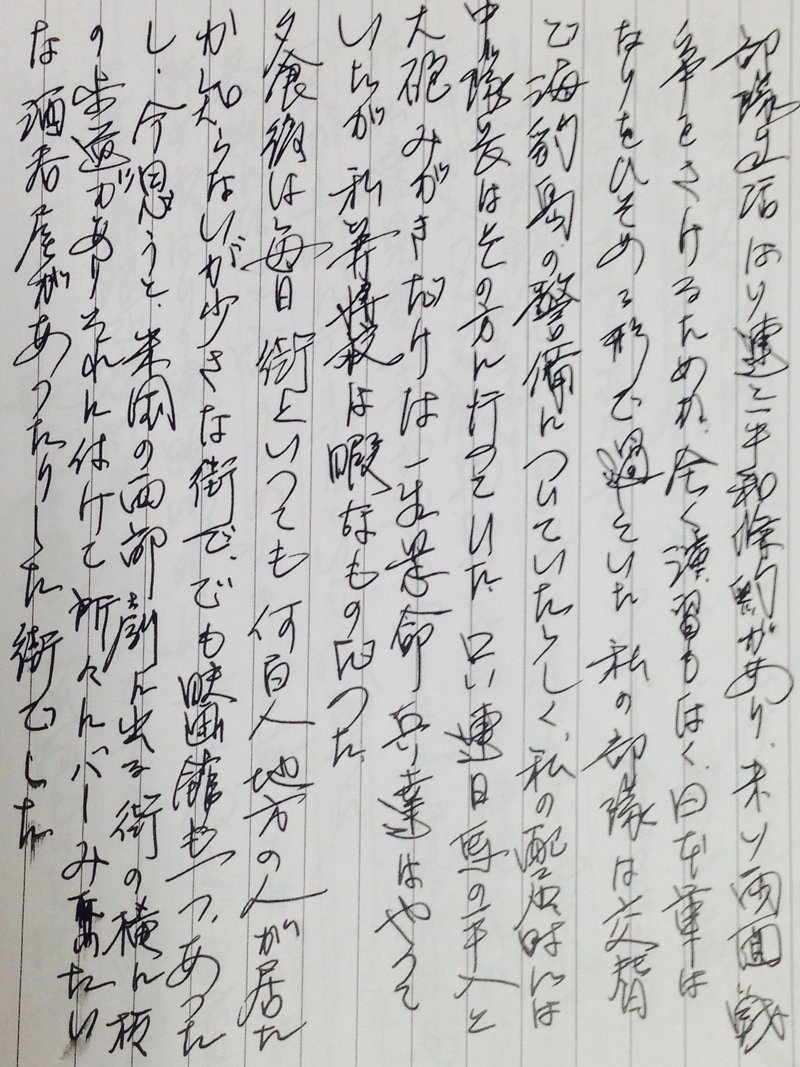 部隊生活はソ連と不和條約があり、米ソ両国戦
争をさけるためか、全く演習もなく、日本軍は
なりをひそめる形で過していた 私の部隊は交替
で海豹島の警備についていたらしく、私の配属時には
中隊長はその方に行っていた、只、連日馬の手入と
大砲みがきだけは一生懸命 兵達はやって
いたが 私等将校は暇なもの だった、
夕食後は毎日 街といっても 何百人 地方の人が居た
か知らないが少さな街で、でも映画館も一つ、あった
し、今思うと、米国の西部劇に出る 街の横に板
の歩道がありそれに付けて 所々にバーみたい
な 酒居屋があったりした 街でした